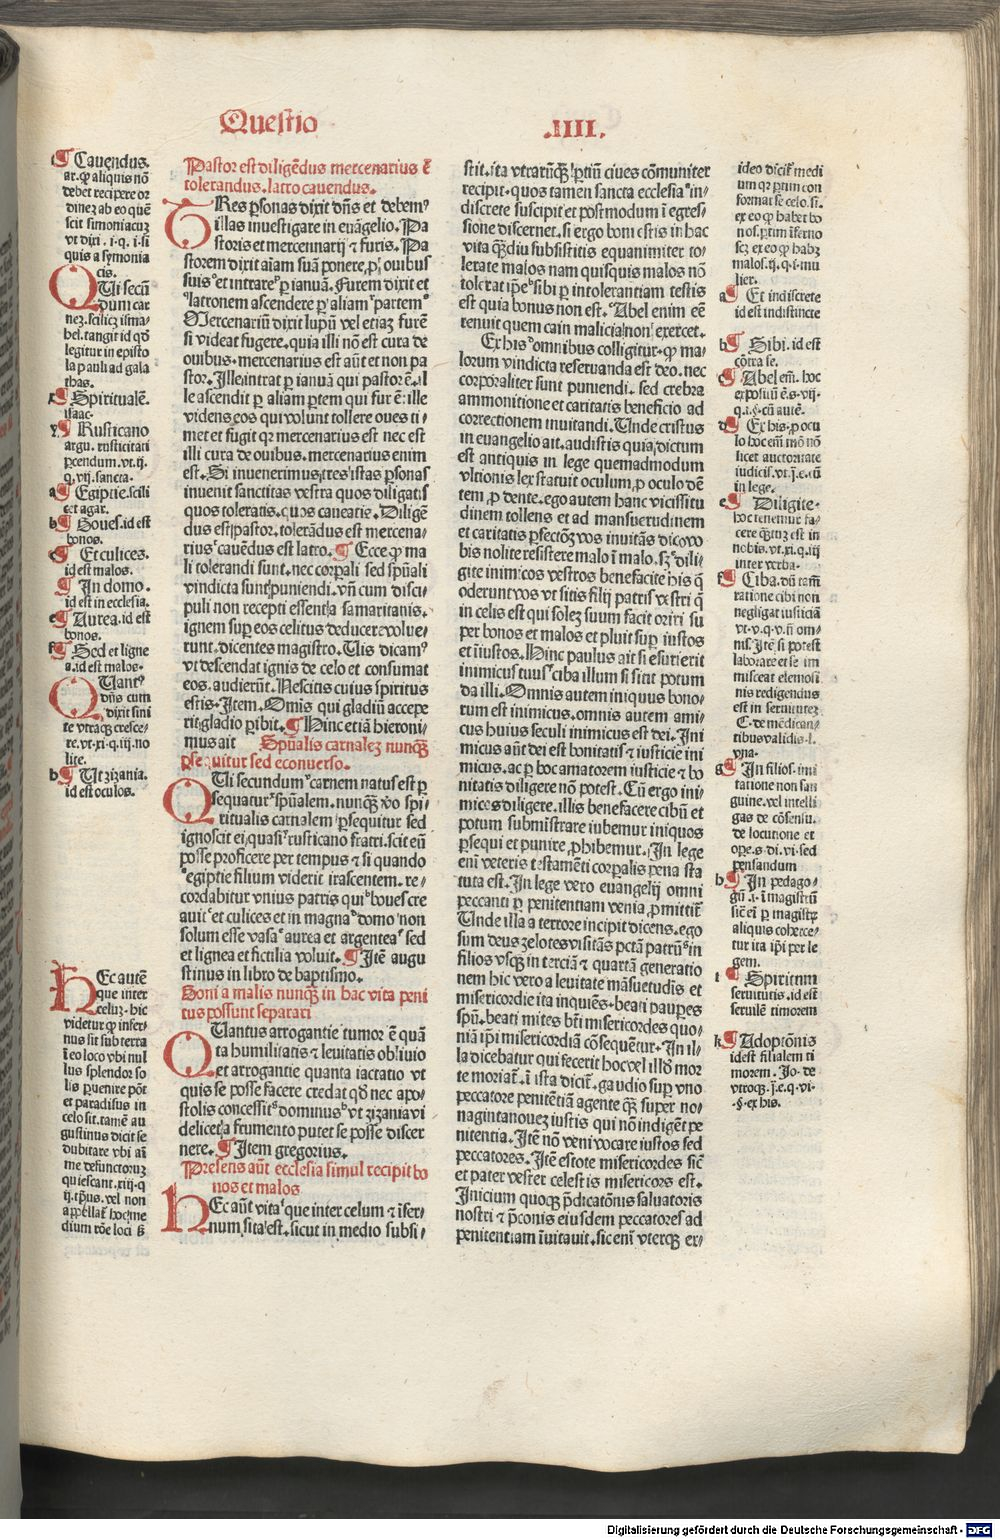 Questio
.IIII.
¶ Cauendus.
ar. ꝙ aliquis nō
debet recipere or
dinez ab eo quē
scit simoniacuz
vt dixi .i.q.i.si
quis a symonia
cis.
QUi secū
dum car
nez. scilicz isma-
hel. tangit id qd̄
legitur in episto
la pauli ad gala
thas.
¶ Spiritualē.
isaac.
y ¶ Rusticano
argu. rusticitati
ꝑcendum. vt.ij.
q.vij. sancta.
a ¶ Egiptie. scili
cet agar.
b ¶ Boues. id est
bonos.
c ¶ Et culices.
id est malos.
¶ In domo.
id est in ecclesia.
e ¶ Aurea. id est
bonos.
f ¶ Sed et ligne
a. id est malos.
QUant⁹
dn̄s cum
dixit sini
te vtraqꝫ cresce-
re. vt.xi.q.iij. no
lite.
h ¶ Ut zizania.
id est oculos.
HEc autē
que inter
celuz. hic
videtur ꝙ infer-
nus sit sub terra
ī eo loco vbi nul
lus splendor so
lis ꝑuenire pōt
et paradisus in
celo sit. tamē au
gustinus dicit se
dubitare vbi aī
me defunctoruz
quiescant. xiij.q
ij. tp̄us. vel non
appellat hoc me
dium rōe loci s̄
Pastor est diligēdus mercenarius ē
tolerandus. latro cauendus.
TRes ꝑsonas dixit dn̄s et debem⁹
illas inuestigare in euāgelio. Pa
storis et mercennarij ⁊ furis. Pa
storem dixit aīam suā ponere ꝓ ouibus
suis et intrare ꝑ ianuā. Furem dixit et
latronem ascendere ꝑ aliam partem
Mercenariū dixit lupū vel etiaz furē
si videat fugere. quia illi nō est cura de
ouibus. mercenarius est aūt et non pa
stor. Ille intrat ꝑ ianuā qui pastor ē. il
le ascendit ꝑ aliam ꝑtem qui fur ē: ille
videns eos qui volunt tollere oues ti-
met et fugit qꝛ mercenarius est nec est
illi cura de ouibus. mercenarius enim
est. Si inuenerimus tres istas ꝑsonas
inuenit sanctitas vestra quos diligatis
quos toleratis. quos caueatis. Diligē
dus est pastor. tolerādus est mercena-
rius cauēdus est latro. ¶ Ecce ꝙ ma
li tolerandi sunt. nec corꝑali sed spūali
vindicta sunt puniendi. vn̄ cum disci-
puli non recepti essent a samaritanis.
ignem suꝑ eos celitus deducere volue-
runt. dicentes magistro. Uis dicam⁹
vt descendat ignis de celo et consumat
eos. audierūt. Nescitis cuius spiritus
estis. Item. Omīs qui gladiū accepe
rit gladio ꝑibit. ¶ Hinc etiā hieroni-
mus ait
Spūalis carnalez nunqꝫ
ꝑsequitur sed econuerso.
QUi secundum carnem natus est ꝑ
sequatur spūalem. nunqꝫ v̄o spi-
ritualis carnalem ꝑsequitur sed
ignoscit ei quasi rusticano fratri. scit eū
posse proficere per tempus ⁊ si quando
egiptie filium viderit irascentem. re-
cordabitur vnius patris qui boues cre
auit et culices et in magna domo non
solum esse vasa aurea et argentea sed
et lignea et fictilia voluit. ¶ Itē augu
stinus in libro de baptismo.
Boni a malis nunqꝫ in hac vita peni
tus possunt separari
QUantus arrogantie tumor ē quā
ta humilitatis ⁊ leuitatis obliuio
et arrogantie quanta iactatio vt
quis se posse facere credat qd̄ nec apo-
stolis concessit dominus vt zizania vi
delicet a frumento putet se posse discer
nere. ¶ Item gregorius.
Presens aūt ecclesia simul recipit bo
nos et malos
HEc aūt vita que inter celum ⁊ īfer-
num sita est. sicut in medio subsi-
stit. ita vtrarūqꝫ ꝑtiū ciues cōmuniter
recipit. quos tamen sancta ecclesia in-
discrete suscipit et postmodum ī egres-
sione discernet. si ergo boni estis in hac
vita qꝫdiu subsistitis equanimiter to-
lerate malos nam quisquis malos nō
tolerat ip̄e sibi ꝑ intolerantiam testis
est quia bonus non est. Abel enim eē
renuit quem cain malicia non exercet.
Ex his omnibus colligitur. ꝙ ma-
lorum vindicta reseruanda est deo. nec
corporaliter sunt puniendi. sed crebra
ammonitione et caritatis beneficio ad
correctionem inuitandi. Unde cristus
in euangelio ait. audistis quia dictum
est antiquis in lege quemadmodum
vltionis lex statuit oculum ꝓ oculo dē
tem ꝓ dente. ego autem hanc vicissitu
dinem tollens et ad mansuetudinem
et caritatis ꝑfectōꝫ vos inuitās dico vo
bis nolite resistere malo ī malo. sꝫ dili-
gite inimicos vestros benefacite his q̄
oderunt vos vt sitis filij patris vestri q̄
in celis est qui solez suum facit oriri su
per bonos et malos et pluit suꝑ iustos
et īiustos. Hinc paulus ait si esurierit
inimicus tuus ciba illum si sitit potum
da illi. Omnis autem iniquus bono-
rum est inimicus. omnis autem ami-
cus huius seculi inimicus est dei. Ini
micus aūt dei est bonitatis ⁊ iusticie ini
micus. ac ꝑ hoc amatorem iusticie ⁊ bo
nitatis diligere nō potest. Cū ergo ini-
micos diligere. illis benefacere cibū et
potum subministrare iubemur iniquos
ꝑsequi et punire ꝓhibemur. In lege
enī veteris testamēti corꝑalis pena sta
tuta est. In lege vero euangelij omni
peccanti ꝑ penitentiam venia ꝓmittit̄.
Unde illa a terrore incipit dicens. ego
sum deus zelotes visitās pctā patrū in
filios vsqꝫ in terciā ⁊ quartā generatio
nem hic vero a leuitate māsuetudīs et
misericordie ita inquiēs. beati pauꝑes
spū. beati mites bt̄i misericordes quo-
niā ip̄i misericordiā cōsequētur. In il-
la dicebatur qui fecerit hoc vel illd̄ mor
te moriat̄. ī ista dicit̄. gaudio suꝑ vno
peccatore penitētiā agente qꝫ super no-
nagintanouez iustis qui nō indigēt pe
nitentia. Itē nō veni vocare iustos sed
peccatores. Itē estote misericordes sic̄
et pater vester celestis misericors est.
Inicium quoqꝫ p̄dicatōnis saluatoris
nostri ⁊ p̄conis eiusdem peccatores ad
penitentiam īuitauit. sic enī vterqꝫ ex-
ideo dicit̄ medi
um qꝛ ꝑtim con
format se celo. si.
ex eo ꝙ habet bo
nos. ꝑtim īferno
scꝫ ex eo ꝙ habꝫ
malos. ij.q.i. mu
lier.
a ¶ Et indiscrete
id est indistincte
b ¶ Sibi. id est
cōtra se.
c ¶ Abel em̄. hoc
expositū ē.s.vij.
q.i.§. cū autē.
d ¶ Ex his. ꝓ ocu
lo hoc em̄ mō nō
licet auctoritate
iudicis. vt.j.e. cū
in lege.
e ¶ Diligite.
hoc tenemur fa-
cere qꝫtuꝫ est in
nobis. vt.xi.q.iij
inter verba.
f ¶ Ciba. dū tam̄
ratione cibi non
negligat iusticiā
vt.v.q.v. n̄ om-
nis. Itē si potest
laborare et se im
misceat elemosi
nis redigendus
est in seruitutez
C. de mēdican-
tibus validis. l.
vna.
g ¶ In filios. imi
tatione non san
guine. vel intelli
gas de cōsensu.
de locutione et
oꝑe.s.di.vi. sed
pensandum
h ¶ In pedago-
gū .i. ī magistrū
sic̄ eī ꝑ magistꝝ
aliquis coherce-
tur ita ip̄i per le
gem.
i ¶ Spiritum
seruitutis. id est
seruilē timorem
k ¶ Adoptōnis
id est filialem ti
morem. Io. de
vtroqꝫ. j.e.q.vi.
.§. ex his.
Digitalisierung gefördert durch die Deutsche Forschungsgemeinschaft - DFG